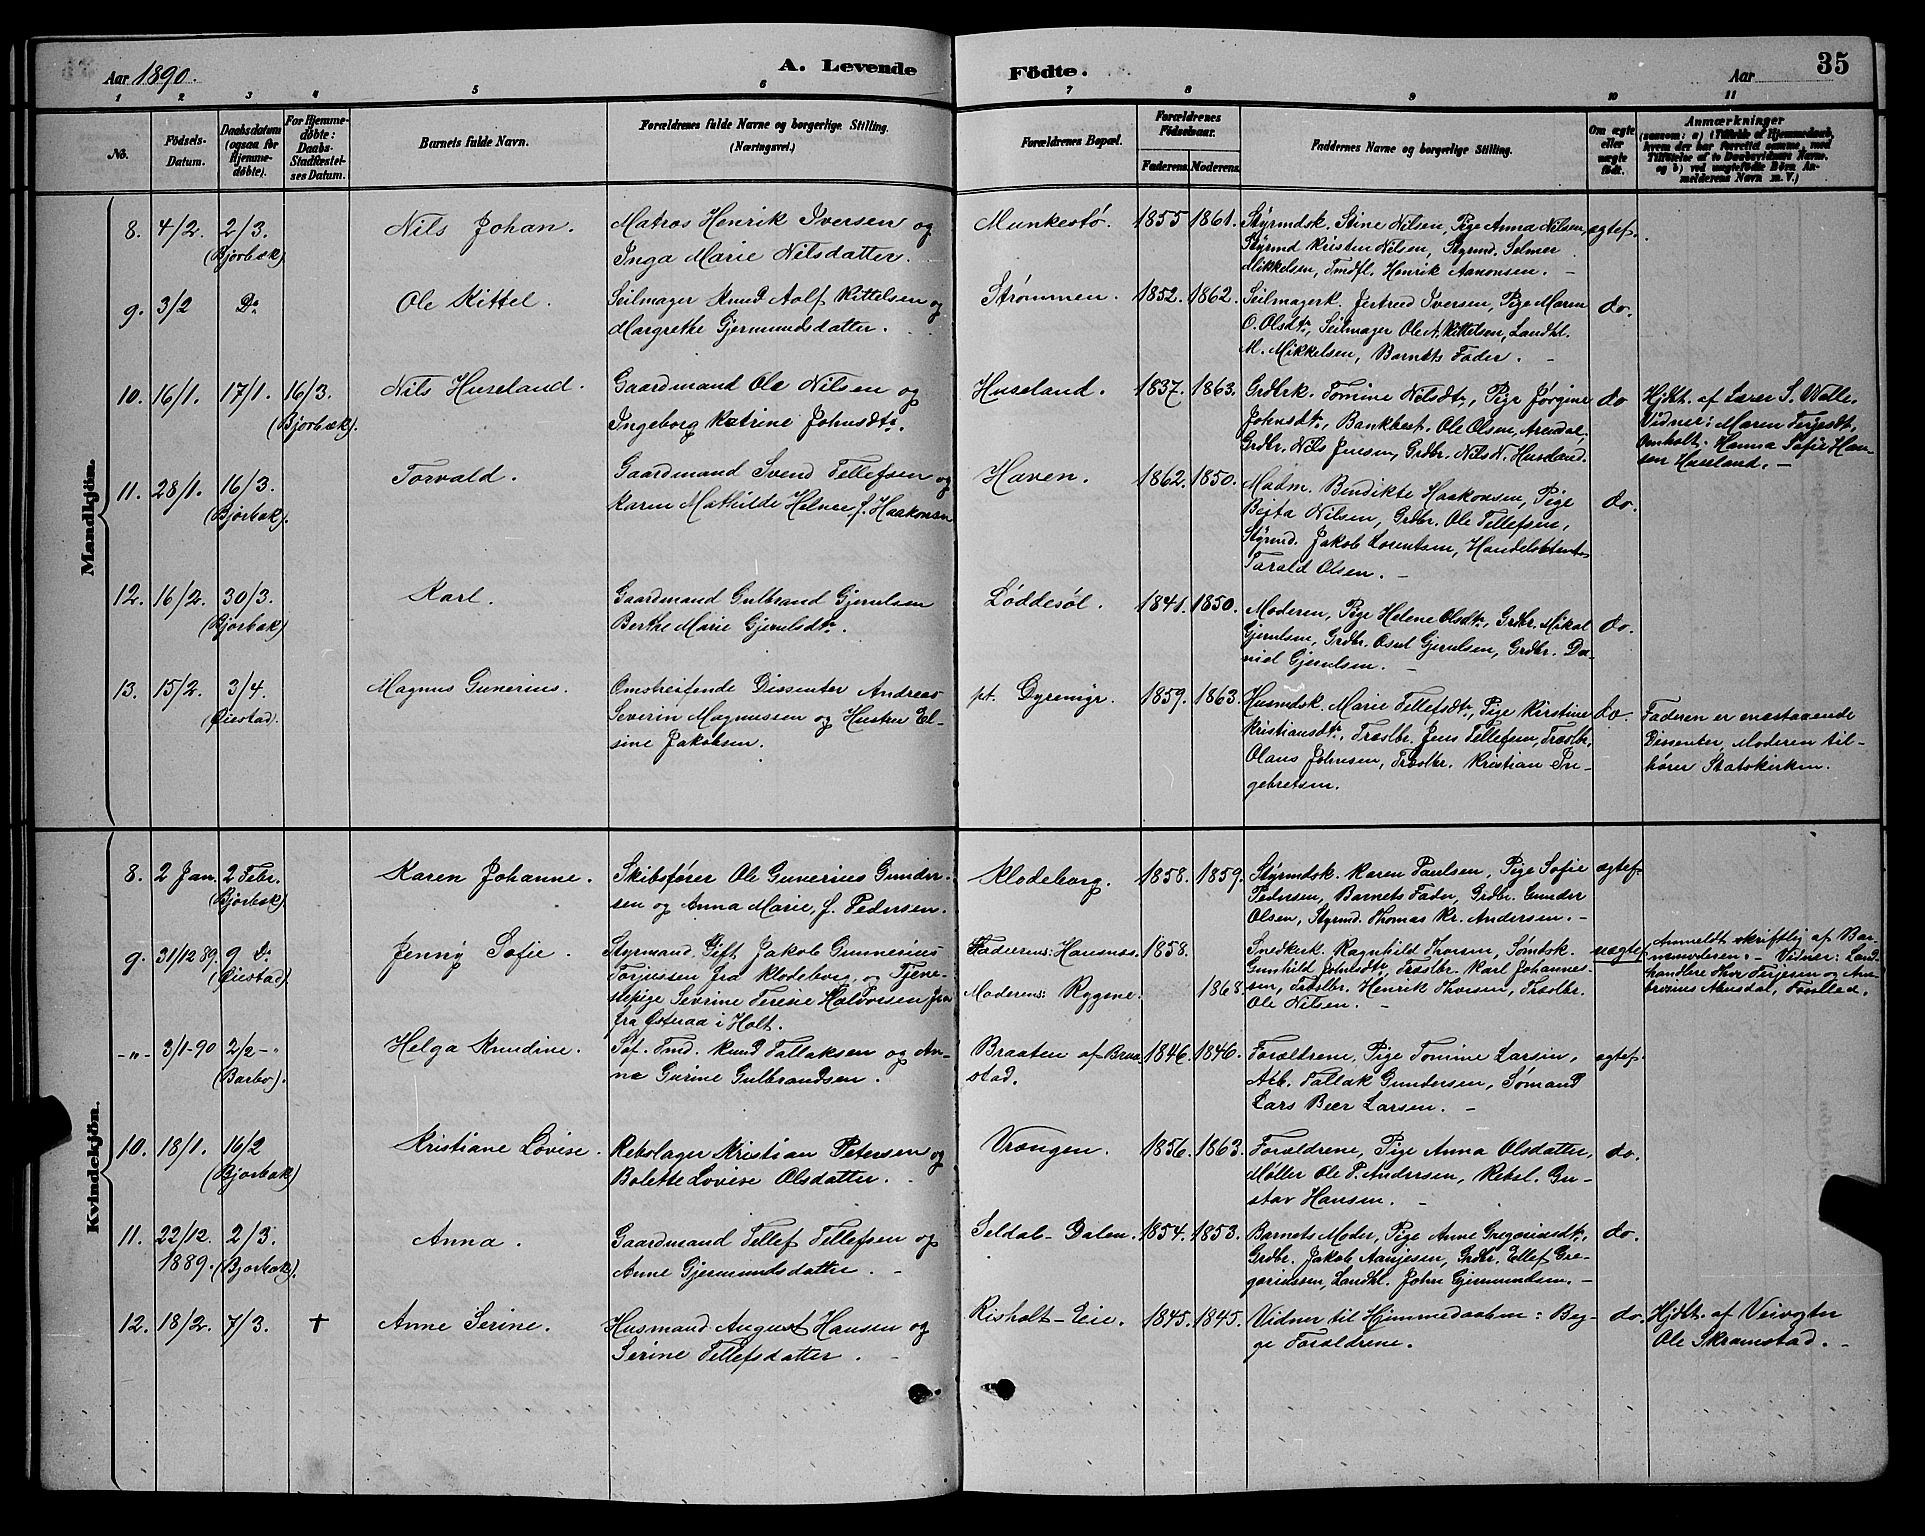 Aar 1890. A. Levende Födte. Aar 35
1 2 3 4 5 6 7 8 9 10 11
No. Födsels-Datum. Daabsdatum (ogsaa for Hjemmedöbte). For Hjemmedöbte: Daabs-Stadfæstelses Datum. Barnets fulde Navn. Forældrenes fulde Navne og borgerlige Stilling. (Næringsvei.) Forældrenes Bopæl. Forældrenes Födselsaar. Faderens. Moderens. Faddernes Navne og borgerlige Stilling. Om ægte eller uægte født. Anmærkninger
Mandkjön.
8. 4/2. 2/3. (Bjorbæk) Nils Johan. Matros Henrik Iversen og
Inga Marie Nilsdatter.
Munkestø. 1855 1861. Styrmdsk. Stine Nilsen, Pige Anna Nilsen, ægtef.
Styrmd Kristen Nilsen, Styrmd. Selmer
Mikkelsen, Tmdfl. Henrik Aanonsen. –
9. 3/2 Do Ole Kittel. Seilmager Knud Aolf Kittelsen og
Margrethe Gjermundsdatter.
Strømmen. 1852. 1862. Seilmagerk. Jertrud Iversen, Pige Maren do.
O. Olsdtr, Seilmager Ole A. Kittelsen, Landhl.
M. Mikkelsen, Barnets Fader. –
10. 16/1. 17/1. 16/3. (Bjorbæk). Nils Huseland. Gaardmand Ole Nilsen og
Ingeborg Katrine Johnsdtr.
Huseland. 1837. 1863. Grdbrk. Tomine Nilsdtr, Pige Jørgine do
Johnsdtr, Bankbest. Ole Olsen, Arendal,
Grdbr. Nils Jensen, Grdbr. Nils N. Huseland.
Hjdbt. af Lærer S. Walle.
Vidner: Maren Terjesdt.
Omholt. Hanna Sofie Han-
sen Huseland. –
11. 28/1. 16/3. (Bjorbæk). Torvald. Gaardmand Svend Tellefsen og
Karen Mathilde Helvee f. Haakonsen
Haven. 1862. 1850. Madm. Bendikte Haakonsen, Pige do.
Berta Nilsen, Grdbr. Ole Tellefsen,
Styrmd. Jakob Lorentsen, Handelsbetent
Tarald Olsen. –
12. 16/2. 30/3. (Bjorbæk) Karl. Gaardmand Gulbrand Gjerulsen
Berthe Marie Gjerulsdtr.
Løddesøl. 1841. 1850. Moderen, Pige Helene Olsdtr, Grdbr. Mikal do.
Gjerulsen, Grdbr. Osul Gjerulsen, Grdbr. Da-
niel Gjerulsen. –
13. 15/2. 3/4. (Øiestad). Magnus Gunerius. Omstreifende Dissenter Andreas
Severin Magnussen og Hustru El-
sine Jakobsen.
pt. Dyremyr. 1859. 1863. Husmdsk. Marie Tellefsdtr, Pige Kirstine do.
Kristiansdtr, Træslbr. Jens Tellefsen, Træslbr.
Olaus Johnsen, Træslbr. Kristian In-
gebretsen.
Faderen er enestaaende
Dissenter, Moderen til-
hører Statskirken.
Kvindekjön.
8. 2 Jan. 2 Febr. (Bjorbæk) Karen Johanne. Skibsfører Ole Gunerius Gunder-
sen og Anna Marie, f. Pedersen.
Klodeborg. 1858. 1859. Styrmdsk. Karen Paulsen, Pige Sofie ægtef.
Pedersen, Barnets Fader, Grdbr. Gunder
Olsen, Styrmd. Thomas Kr. Andersen. –
9. 31/12 89. 9 Do (Øiestad). Jenny Sofie. Styrmand, Gift, Jakob Gunnerius
Torjussen fra Klodeborg, og Tjene-
stepige Severine Terese Halvorsen
fra Østeraa i Holt.
Faderens: Hausnes. 1858.
Moderens: Rygene. 1868.
Snedkerk. Ragnhild Thorsen, Sømdsk. uægtef.
Gunhild Johnsdtr, Træslbr. Karl Johannes-
sen, Træslbr. Henrik Thorsen, Træslbr.
Ole Nilsen. –
Anmeldt skriftlig af Bar-
nemoderen. – Vidner: Land-
handlere Thor Terjesen og Am-
brosius Aamsdal, Froilled.
-"- 3/1-90 2/2-" (Barbo). Helga Knudine. Søf. Tmd. Knud Tallaksen og An-
ne Gurine Gulbrandsen.
Braaten af Braa-
stad. 1846. 1846. Forældrene, Pige Tomine Larsen, ægtef.
Arb. Tallak Gundersen, Sømand
Lars Beer Larsen. –
10. 18/1. 16/2 (Bjorbæk) Kristiane Lovise. Rebslager Kristian Petersen og
Bolette Lovise Olsdatter.
Vrængen. 1856. 1863. Forældrene, Pige Anna Olsdatter, do.
Møller Ole P. Andersen, Rebsl. Gu-
stav Hansen. –
11. 22/12. 1889. 2/3. (Bjorbæk). Anna. Gaardmand Tellef Tellefsen og
Anne Gjermundsdatter. –
Seldal-Dalen. 1854. 1853. Barnets Moder, Pige Anne Gregoriusdtr, do.
Grdbr. Jakob Aanjesen, Grdbr. Tellef Gre-
goriussen, Landhl. John Gjermundsen. –
12. 18/2. 7/3. † Anne Serine. Husmand August Hansen og
Serine Tellefsdatter. –
Risholt-Eie. 1845. 1845. Vidner til Hjemmedaaben: Beg- do.
ge Forældrene.
Hjdbt. af Veivogter
Ole Skramstad. –